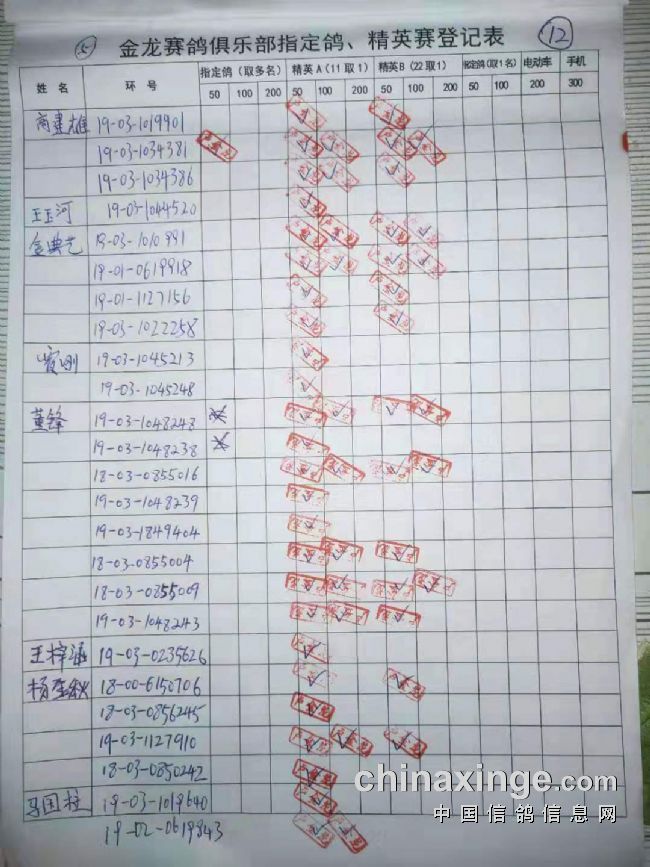 ⑤ 金龙赛鸽俱乐部指定鸽、精英赛登记表 ⑫
姓 名 环 号 指定鸽(取多名) 精英A(11取1) 精英B(22取1) 指定鸽(取1名) 电动车 手机
50 100 200 50 100 200 50 100 200 50 100 200 300
商建雄 19-03-1019901
19-03-1034381
19-03-1034386
王玉河 19-03-1044520
金典艺 19-03-1010991
19-01-0619918
19-01-1127156
19-03-1022258
19-03-1045213
19-03-1045248
董锋 19-03-1048248
19-03-1048238
18-03-0855016
19-03-1048239
19-03-1849404
18-03-0855004
18-03-0855009
19-03-1048243
王梓涵 19-03-0235626
18-00-6150706
18-03-0856245
19-03-1127910
18-03-0850242
马国柱 19-03-1019640
19-02-0619843
chinaxinge.com
中国信鸽信息网